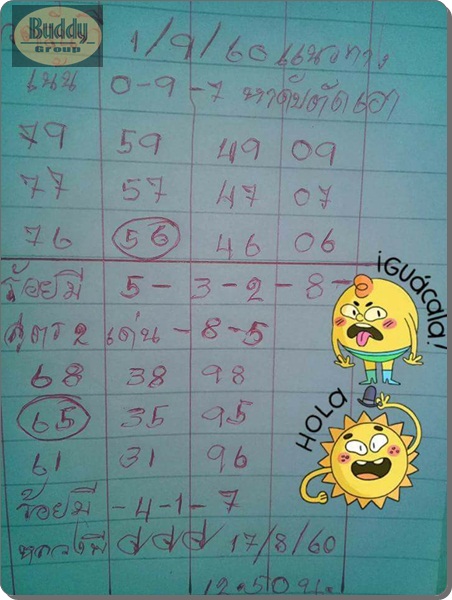 Buddy
Group
1/9/60 แนวทาง
เน้น 0-9-7 หาดับตัดเอา
79 59 49 09
77 57 47 07
76 56 46 06
ร้อยมี 5-3-2-8-
สูตร 2 เด่น -8-5
68 38 98
65 35 95
61 31 96
ร้อยมี -4-1-7
17/8/60
12.50 น.
¡GUÁCALA!
HOLA